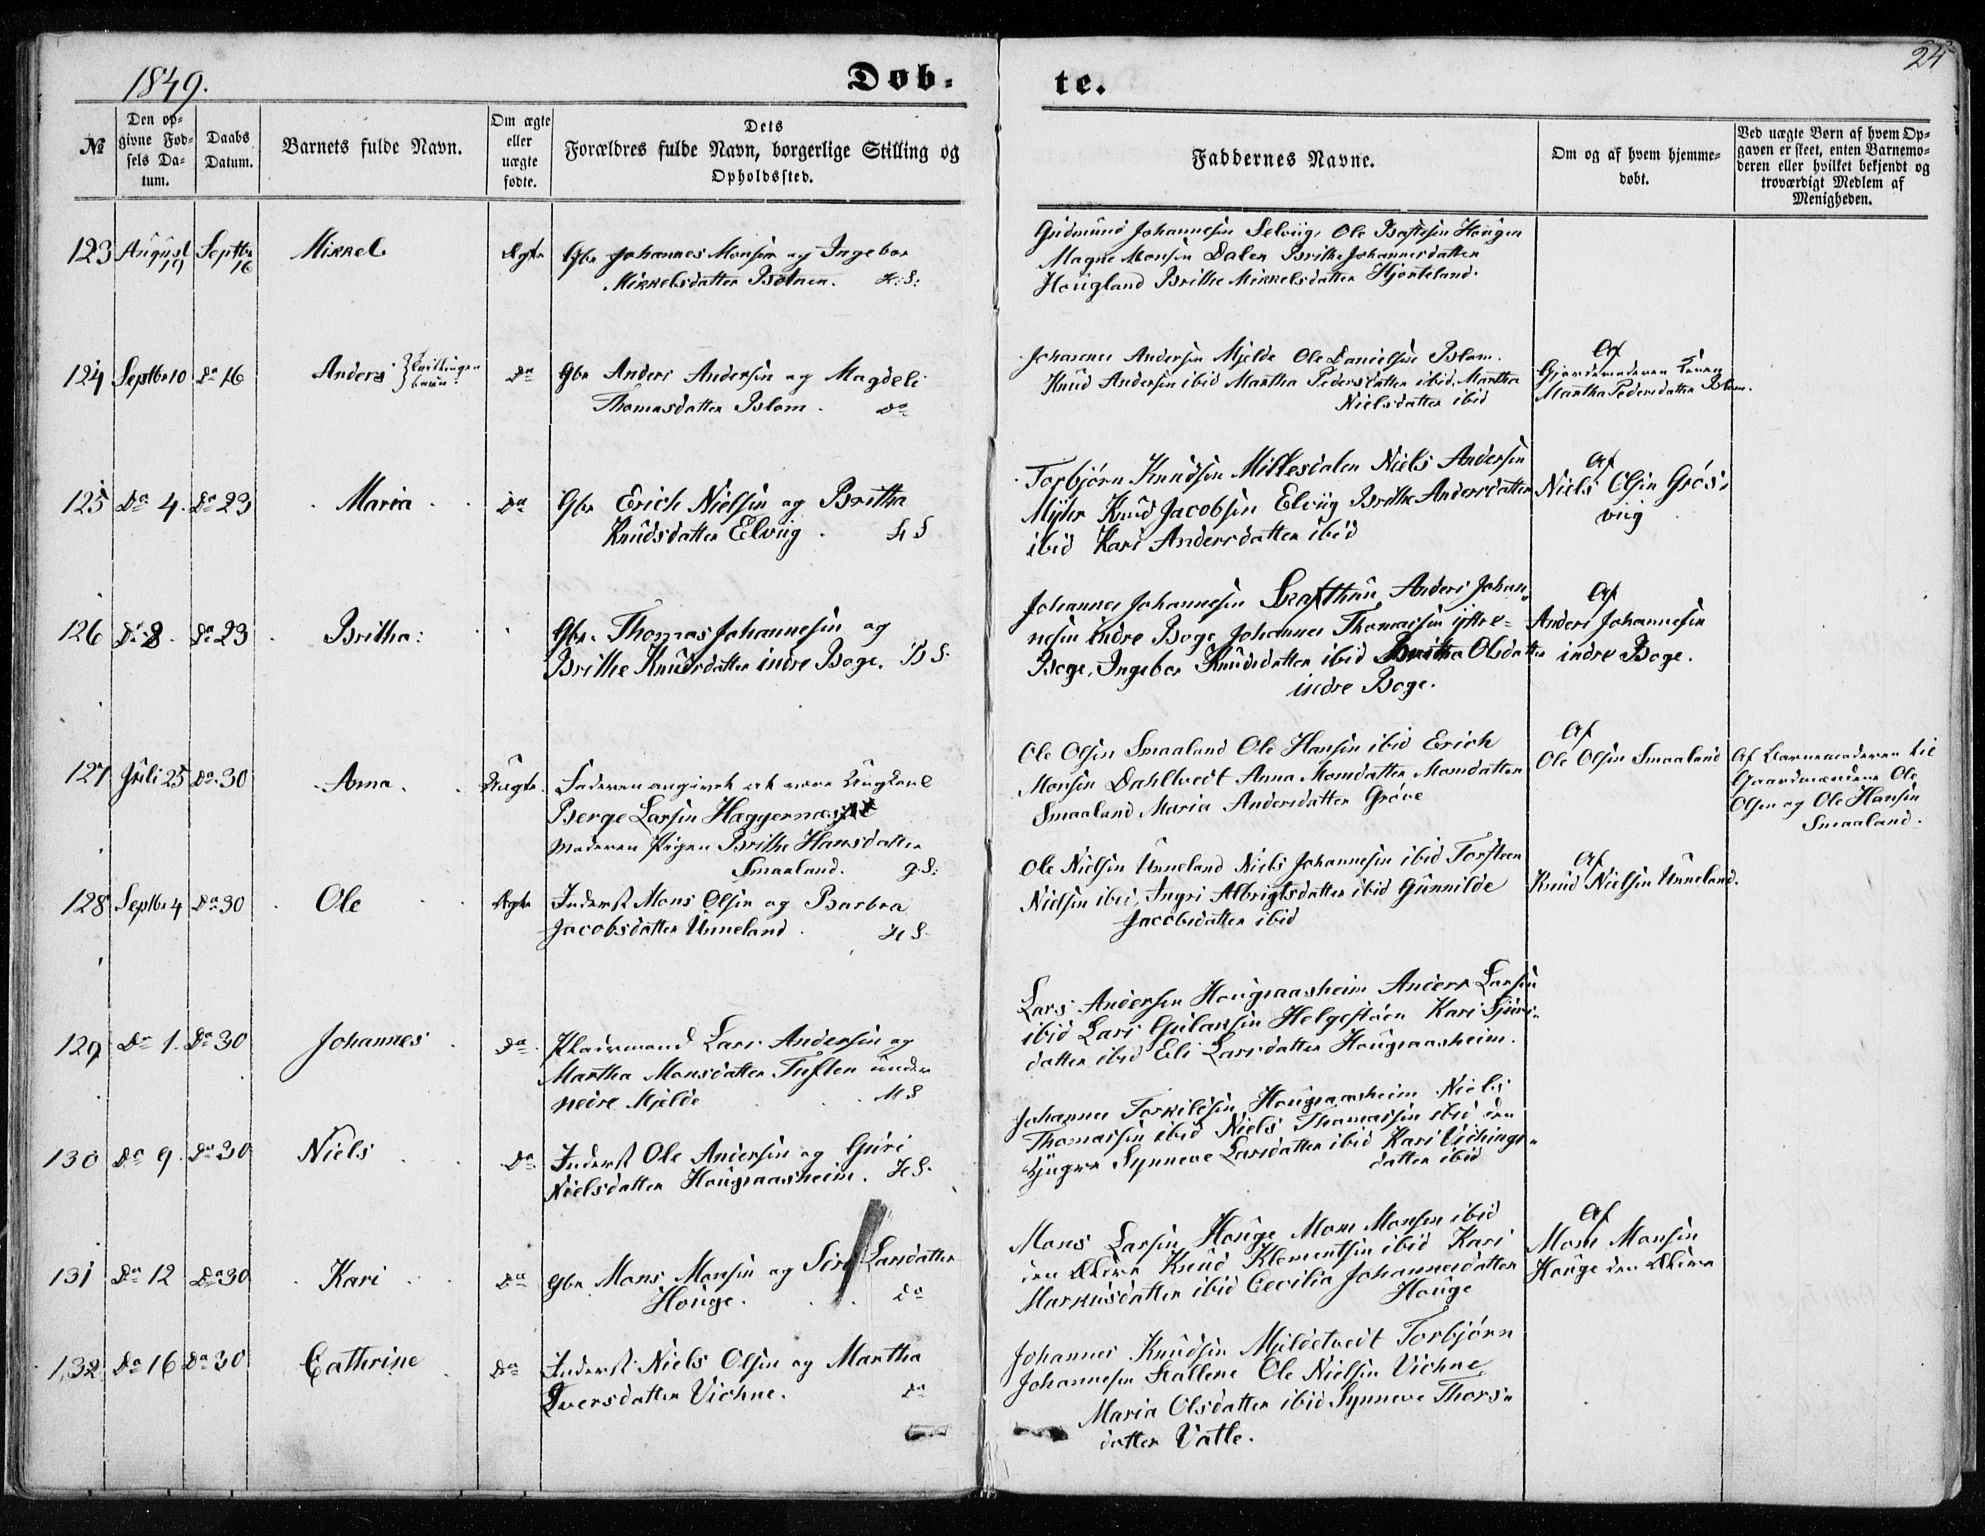 1849.
Døb-
te.
24
№
Den op-
givne Fød-
sels Da-
tum.
Daabs
Datum.
Barnets fulde Navn.
Om ægte
eller
uægte
fødte.
Dets
Forældres fulde Navn, borgerlige Stilling og
Opholdssted.
Faddernes Navne.
Om og af hvem hjemme-
døbt.
Ved uægte Børn af hvem Op-
gaven er skeet, enten Barnemo-
deren eller hvilket bekjendt og
troværdigt Medlem af
Menigheden.
123 August 19 Septbr 16 Mikkel Ægte Gbr Johannes Monsen og Ingebor
Mikkelsdatter Botnen. H: S:
Gudmund Johannesen Selvig, Ole Haugen
Magne Monsen Dalen Brithe Johannesdatter
Hougland Brithe Mikkelsdatter Hjorteland.
124 Septbr 10 Do 16 Anders Tvillinge
barn Do Gbr Anders Andersen og Magdeli
Thomasdatter Blom. Do
Johannes Andersen Mjelde Ole Danielsen Blom.
Knud Andersen ibid Martha Pedersdatter ibid. Martha
Nielsdatter ibid
Af
Gjordemoderen
Martha Pedersdatter Blom.
125 Do 4. Do 23 Maria Do Gbr Erich Nielsen og Britha
Knudsdatter Elvig. H S
Torbjørn Knudsen Millesdalen Niels Andersen
Myhr Knud Jacobsen Elvig Brithe Andersdatter
ibid Kari Andersdatter ibid
Af
Niels Olsen Grøs-
vig
126 Do 8. Do 23 Britha: Gbr. Thomas Johannesen og
Brithe Knudsdatter indre Boge. B S:
Johannes Johannesen Skafthun, Anders Johan-
nesen indre Boge Johannes Thomassen ijttre-
Boge, Ingebor Knudsdatter ibid Britha Olsdatter
indre Boge.
Af
Anders Johannesen
indre Boge.
127 Juli 25 Do 30 Anna. Uægte. Faderen angivet at være Ungkarl
Berge Larsen Haggernæs
Moderen Pigen Brithe Hansdatter
Smaaland. g. S:
Ole Olsen Smaaland Ole Hansen ibid Erich
Monsen Dahltvedt Anna Monsdatter Monsdatter
Smaaland Maria Andersdatter Grøve
Af
Ole Olsen Smaaland
Af Barnemoderen til
Gaardmændene Ole
Olsen og Ole Hansen
Smaaland.
128 Septbr 4 Do 30 Ole Ægte Inderst Mons Olsen og Barbra
Jacobsdatter Unneland. H S.
Ole Nielsen Unneland Niels Johannesen ibid Torsteen
Nielsen ibid, Ingri Albrigtsdatter ibid Gunnilde
Jacobsdatter ibid
Af
Knud Nielsen Unneland.
129 Do 1. Do 30 Johannes Do Pladsmand Lars Andersen og
Martha Monsdatter Tuften under
nedre Mjelde H S
Lars Andersen Hougsaasheim Anders Larsen
ibid Lars Helgestøen Kari Sjurs-
datter ibid Eli Larsdatter Hougsaasheim.
130 Do 9. Do 30 Niels Do. Inderst Ole Andersen og Guri
Nielsdatter Hougsaasheim. H S.
Johannes Torkildsen Hougsaasheim Niels
Thomassen ibid Niels Thomassen ibid den
yngre Synneve Larsdatter ibid Kari Vichings-
datter ibid
131 Do 12 Do 30 Kari Do Gbr Mons Monsen og Siri Larsdatter
Houge. Do
Mons Larsen Houge Mons Monsen ibid
den Ældre Knud Klementsen ibid Kari
Markusdatter ibid Cecilia Johannesdatter
Houge
Af
Mons Monsen
Houge den Ældre
132 Do 16 Do 30 Cathrine Do Inderst Niels Olsen og Martha
Iversdatter Vichne. Do
Johannes Knudsen Mjeldetvedt Torbjørn
Johannesen Kallene Ole Nielsen Vichne
Maria Olsdatter ibid Synneve Thors-
datter Vatle.